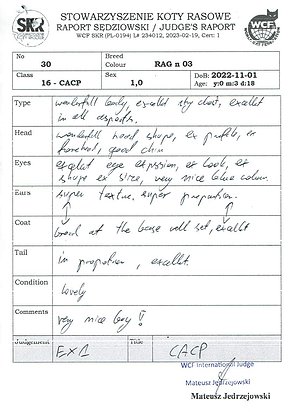 STOWARZYSZENIE KOTY RASOWE
RAPORT SĘDZIOWSKI / JUDGE'S REPORT
WCF SKR (PL-0194) L# 234012, 2023-02-19, Cert: 1
SKR
WCF
No
30
Breed
Colour
RAG n 03
Class
16 - CACP
Sex
1,0
DoB: 2022-11-01
Age: y:0 m:3 d:18
Type
wonderfull body, excellt chest, excellt
in all aspects.
Head
wonderfull head shape, ex profile, ex
forehead, good chin
Eyes
excellet eye expression, ex look, ex
shape ex size, very nice blue colour.
Ears
super textur, super proportion.
Coat
broad at the base well set, exellt
Tail
in proportion, excellet.
Condition
lovely
Comments
very nice boy !!
Judgement
EX1
Title
CACP
WCF International Judge
Mateusz Jedrzejowski
Mateusz Jedrzejowski